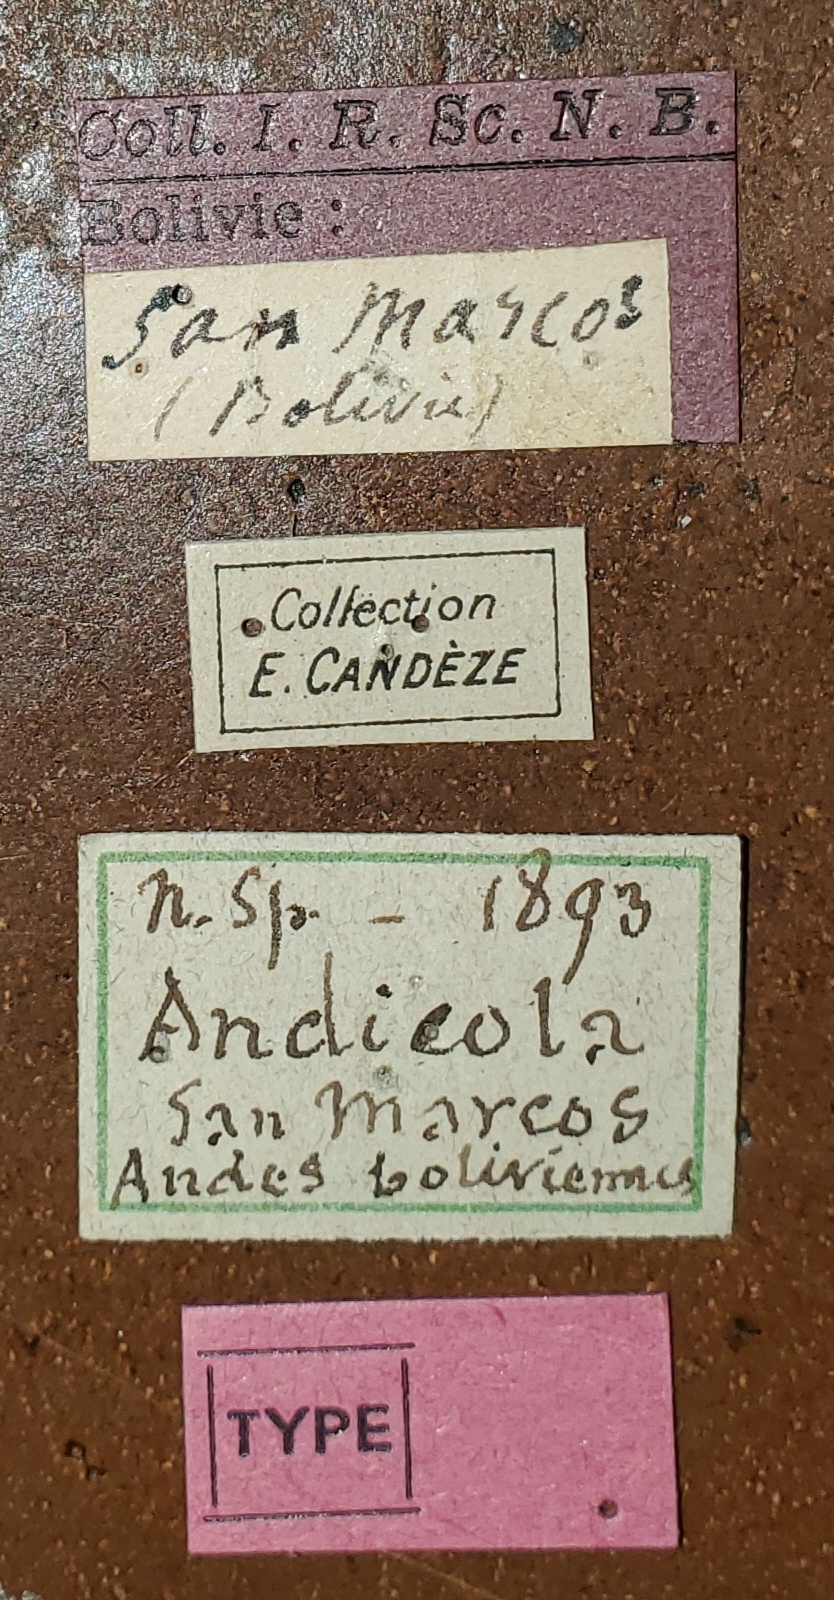 Coll. I. R. Sc. N. B.
Bolivie :
San Marcos
(Bolivie)
Collection
E. CANDÈZE
n. sp. - 1893
Andicola
San Marcos
Andes boliviennes
TYPE